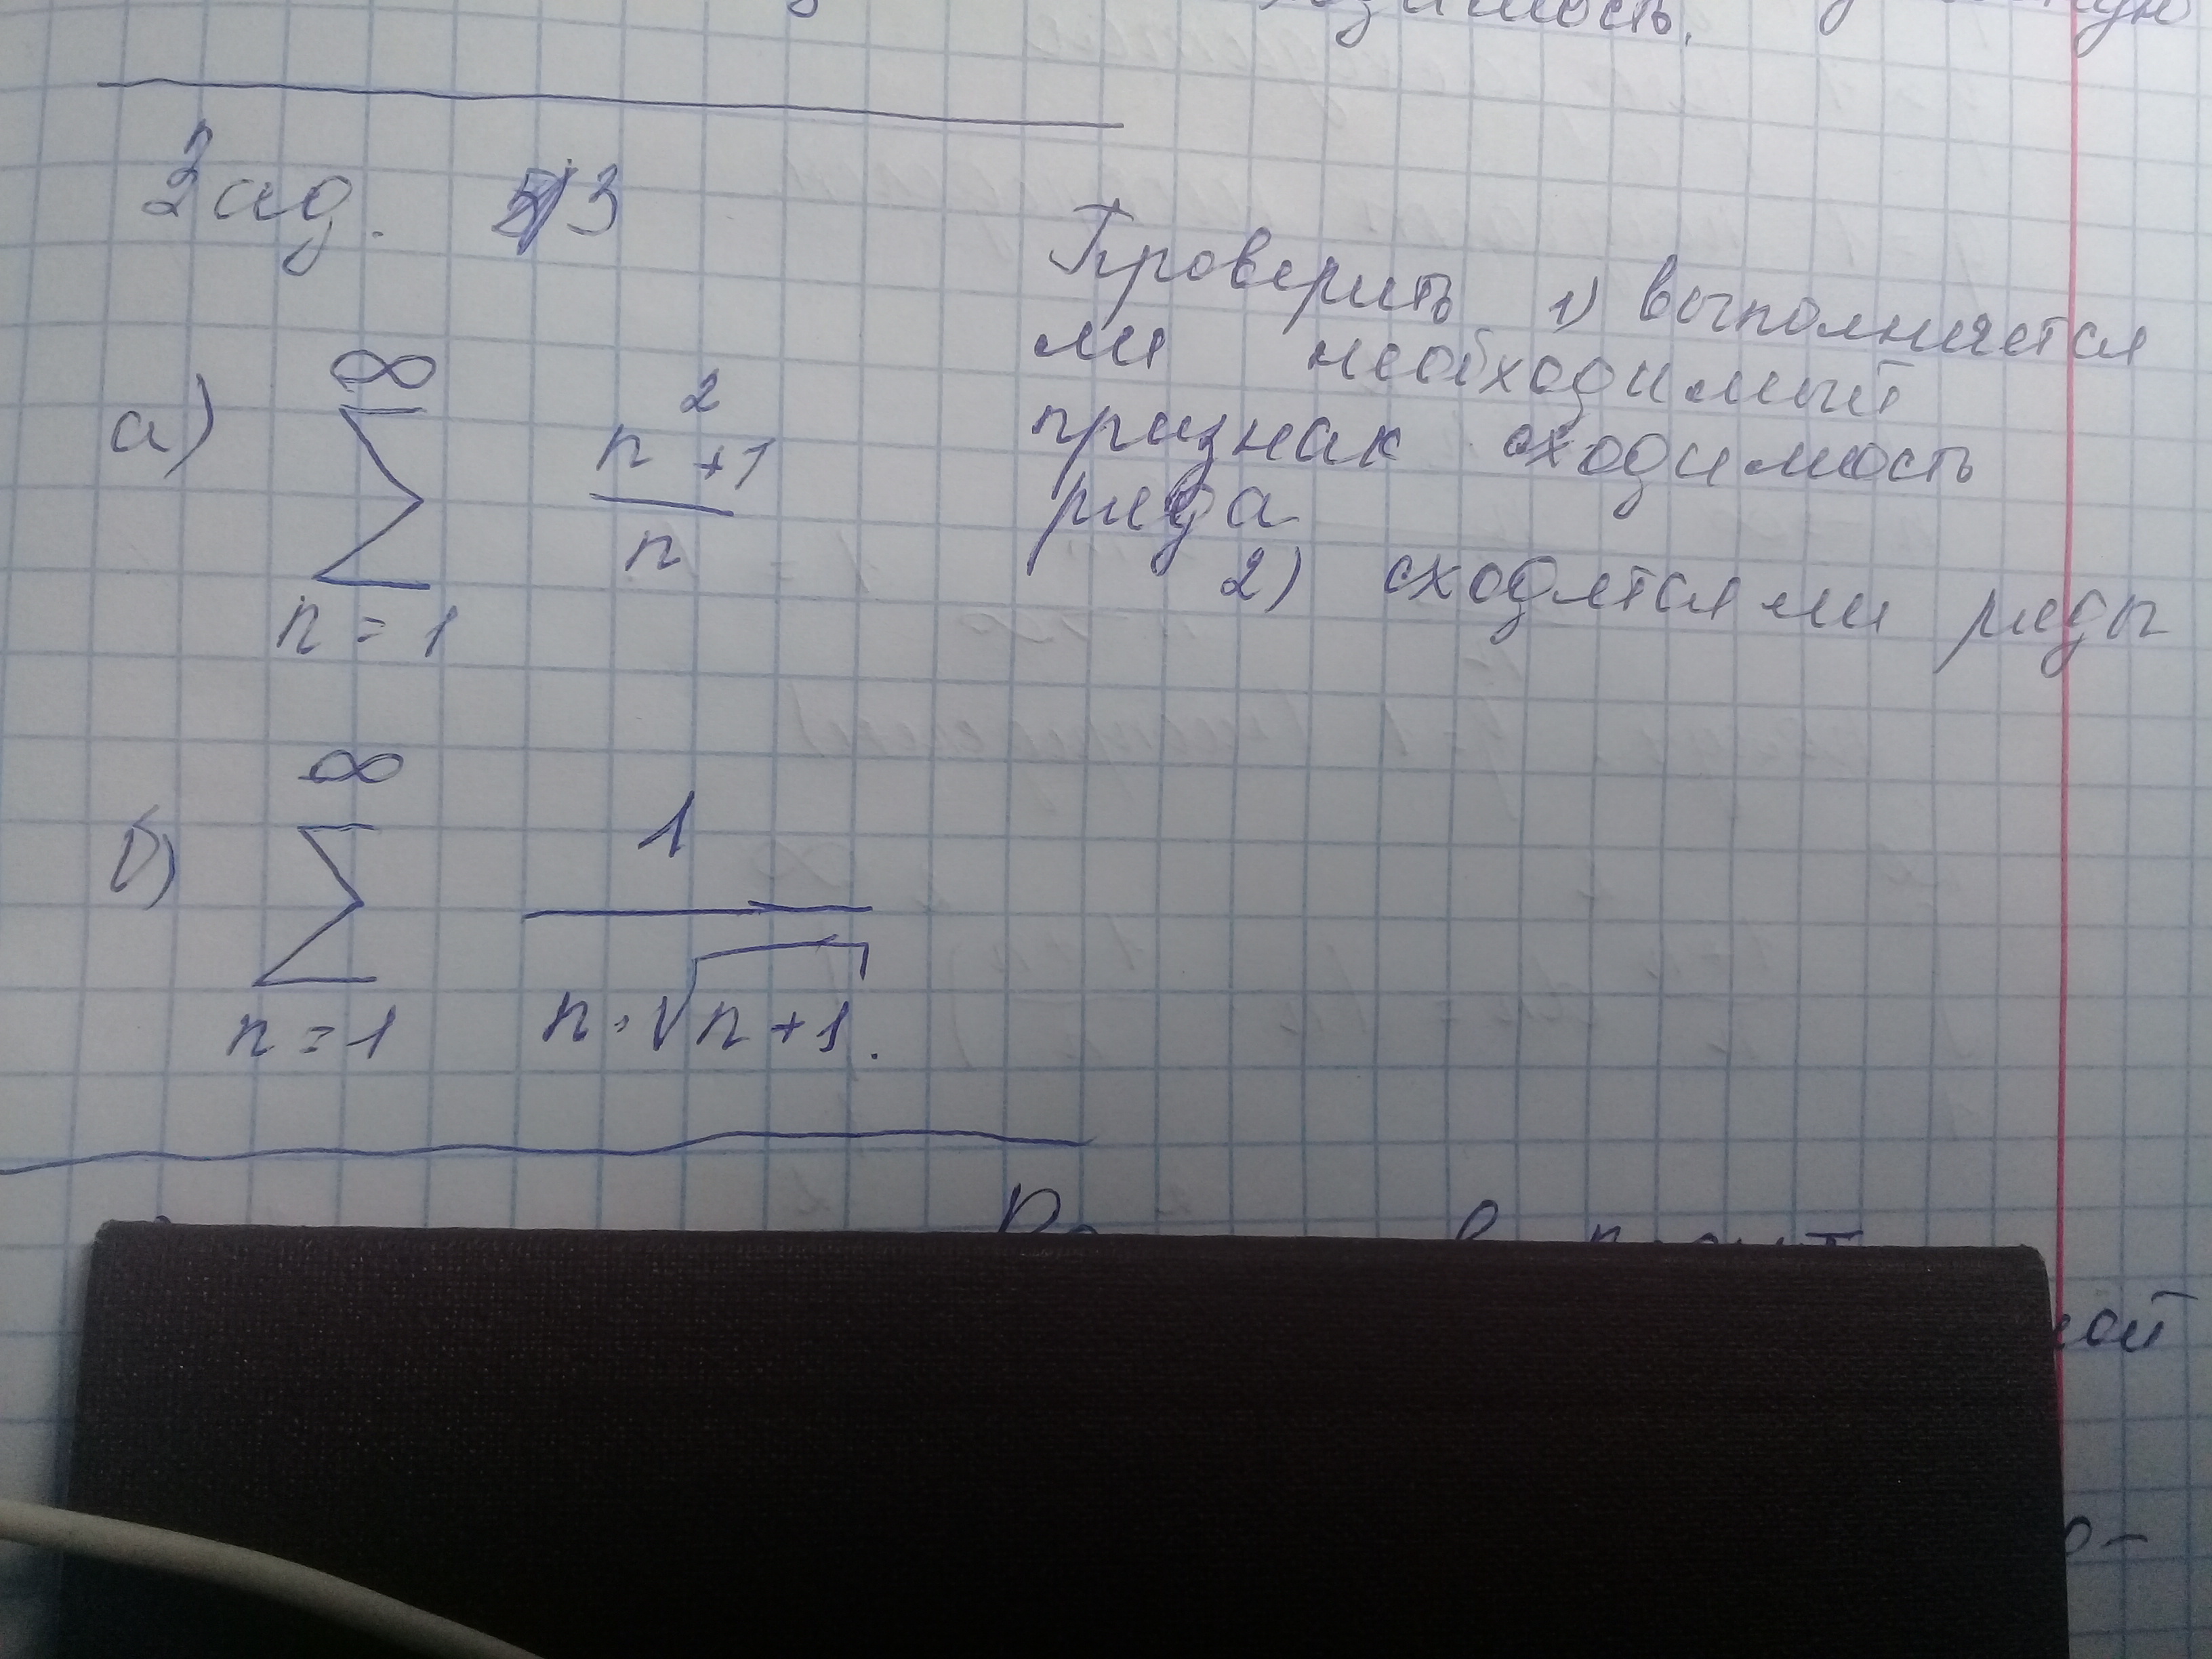 зимость.
Зад. 3
Проверить 1) выполняется
ли необходимый
признак сходимость
ряда
2) сходятся ли ряды
а) ∞ ∑ n=1 n²+1 / n
б) ∞ ∑ n=1 1 / n·√n+1.
в
ной
о-